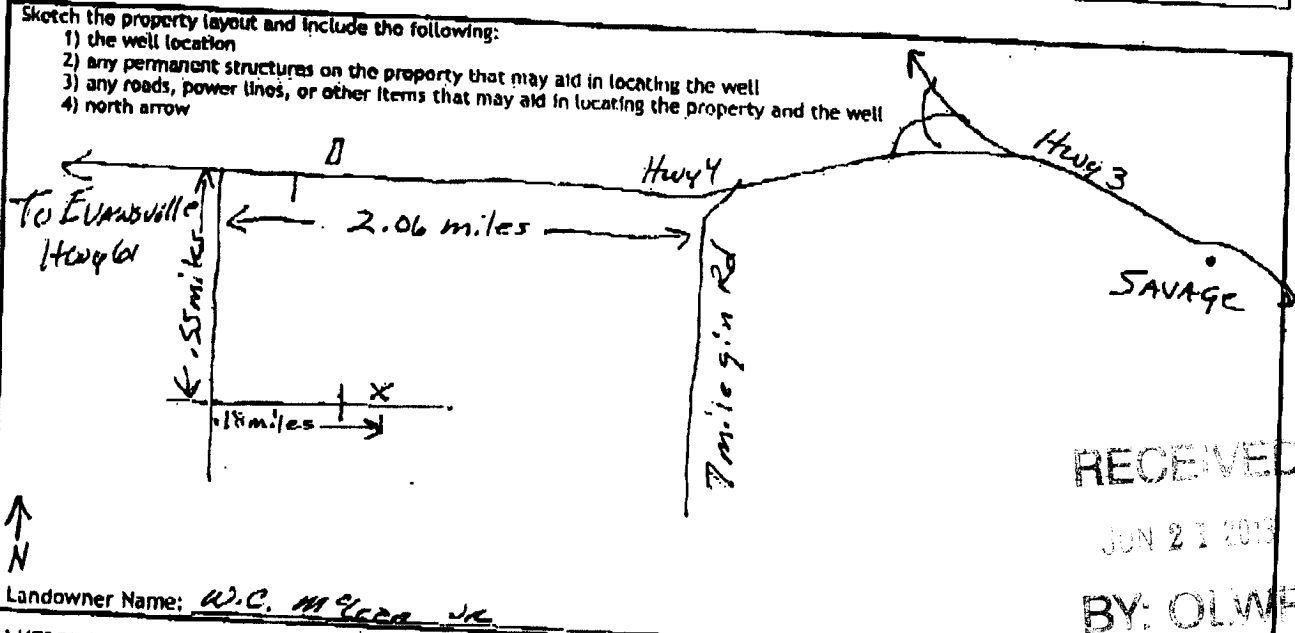 Sketch the property layout and include the following:
1) the well location
2) any permanent structures on the property that may aid in locating the well
3) any roads, power lines, or other items that may aid in locating the property and the well
4) north arrow
Hwy 4
Hwy 3
To Evansville
Hwy 61
2.06 miles
.55 miles
SAVAGE
7 mile gin Rd
X
.18 miles
RECEIVED
JUN 2 1 2013
N
Landowner Name: W.C. JR
BY: OLWR